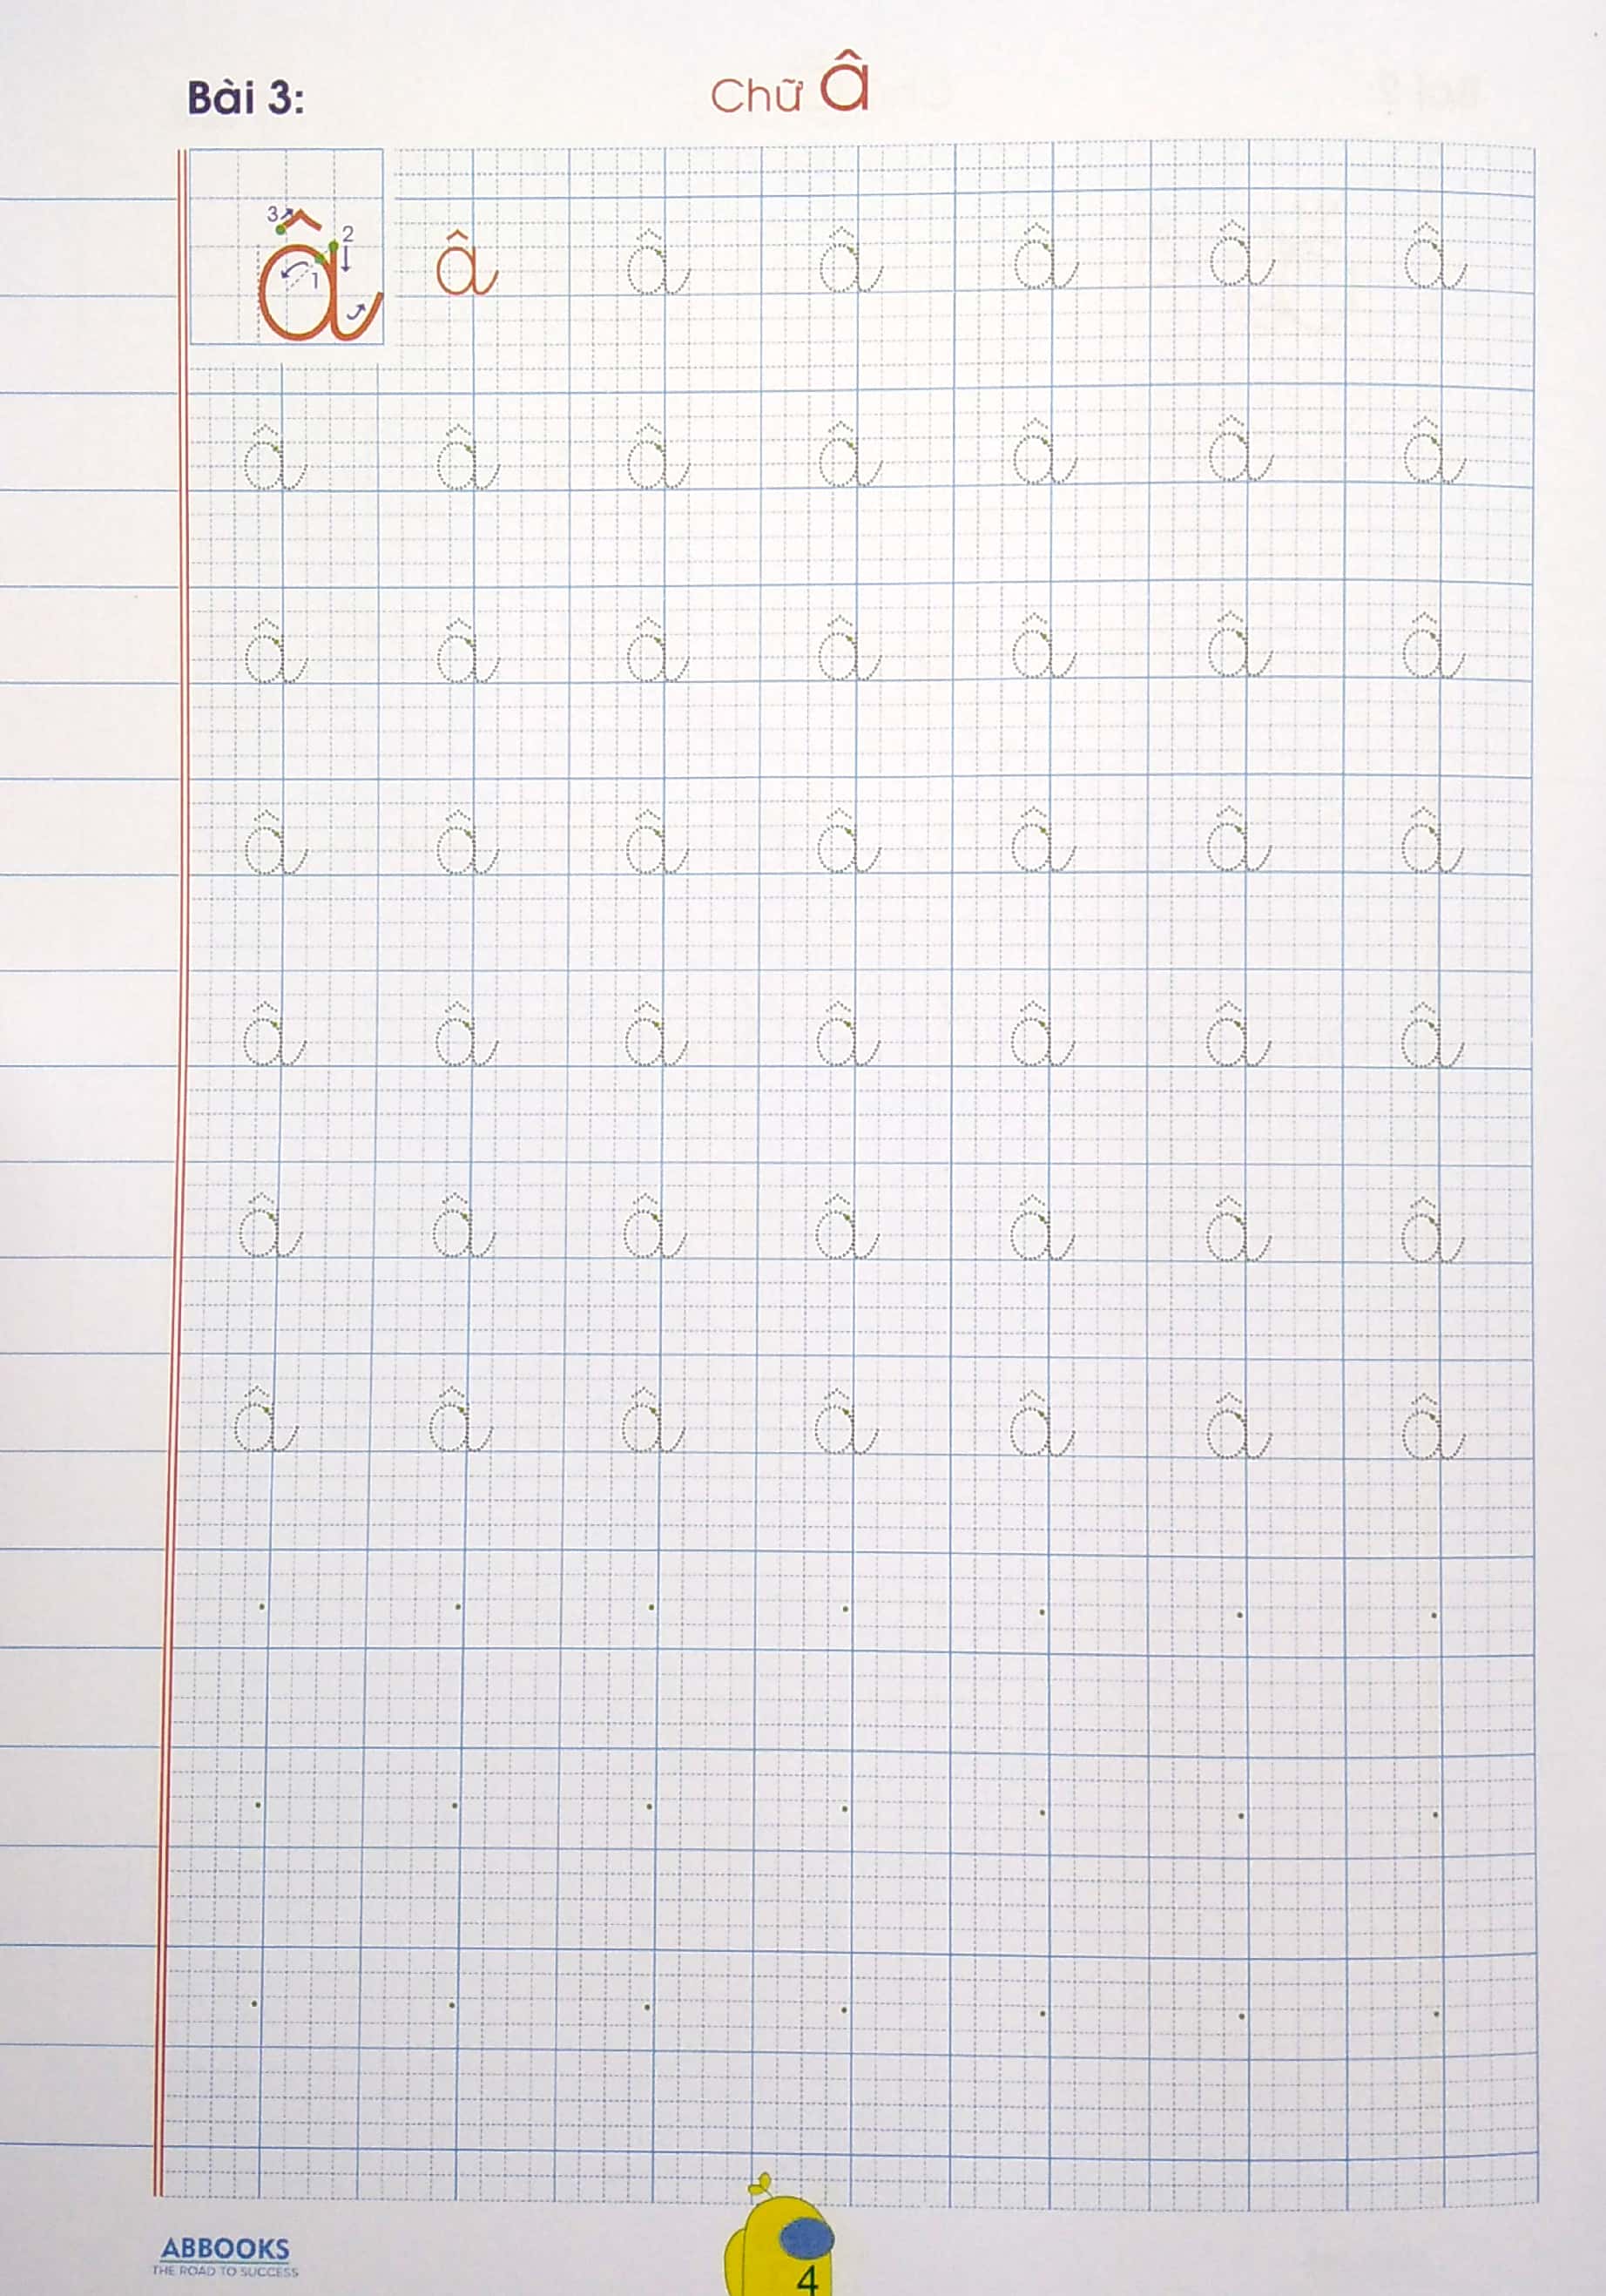 Bài 3:
Chữ â
3 2 1
â â â â â â
â â â â â â â
â â â â â â â
â â â â â â â
â â â â â â â
â â â â â â â
â â â â â â â
ABBOOKS
THE ROAD TO SUCCESS
4